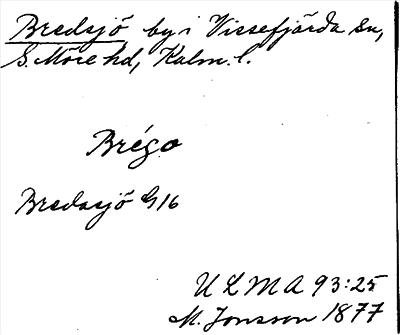 Bredsjö by i Vissefjärda sn,
S. Möre hd, Kalm. l.
Brégo
Bredasjö G16
ULMA 93:25
M. Jonsson 1877